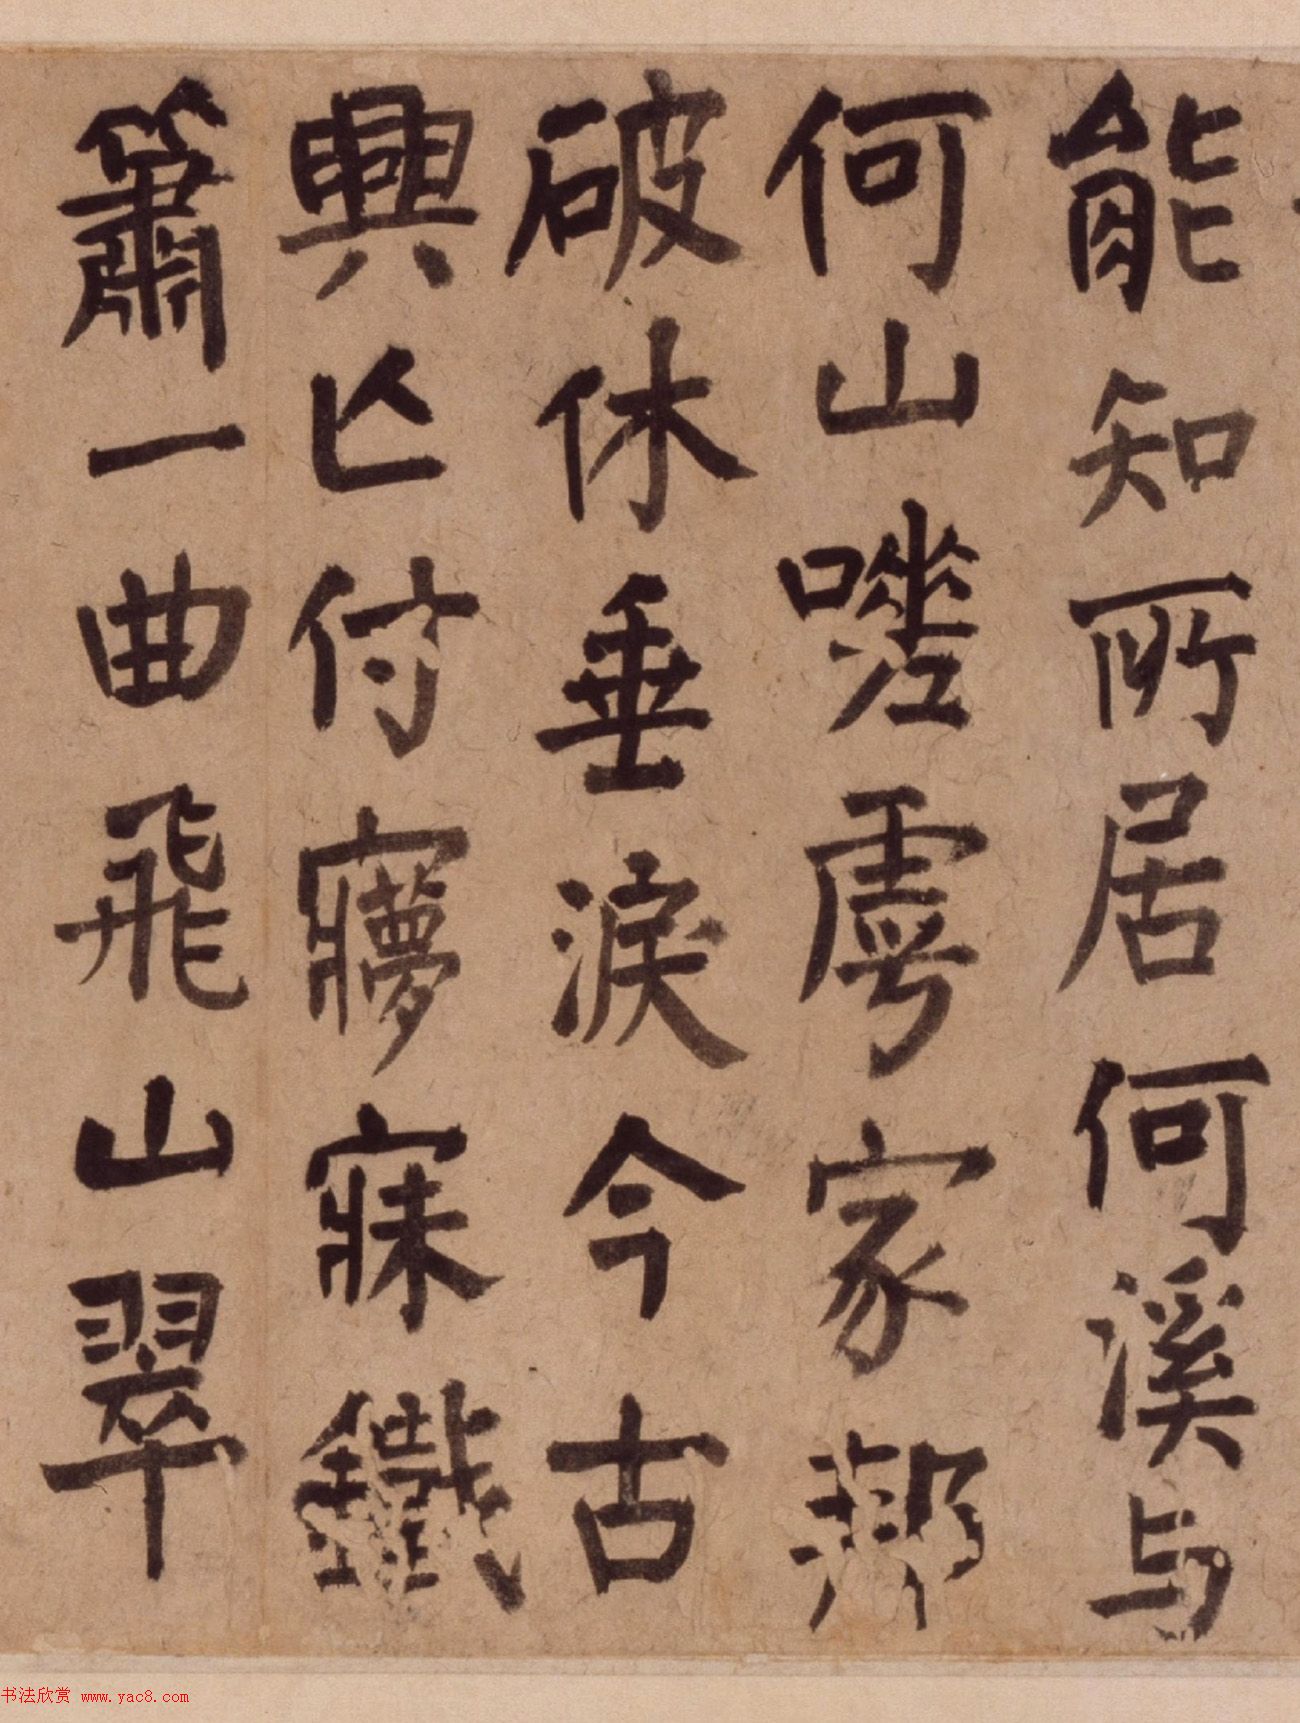 能知所居何溪与
何山嗟虖家邦
破休垂淚今古
興亡付㝱寐鐵
簫一曲飛山翠
书法欣赏 www.yac8.com